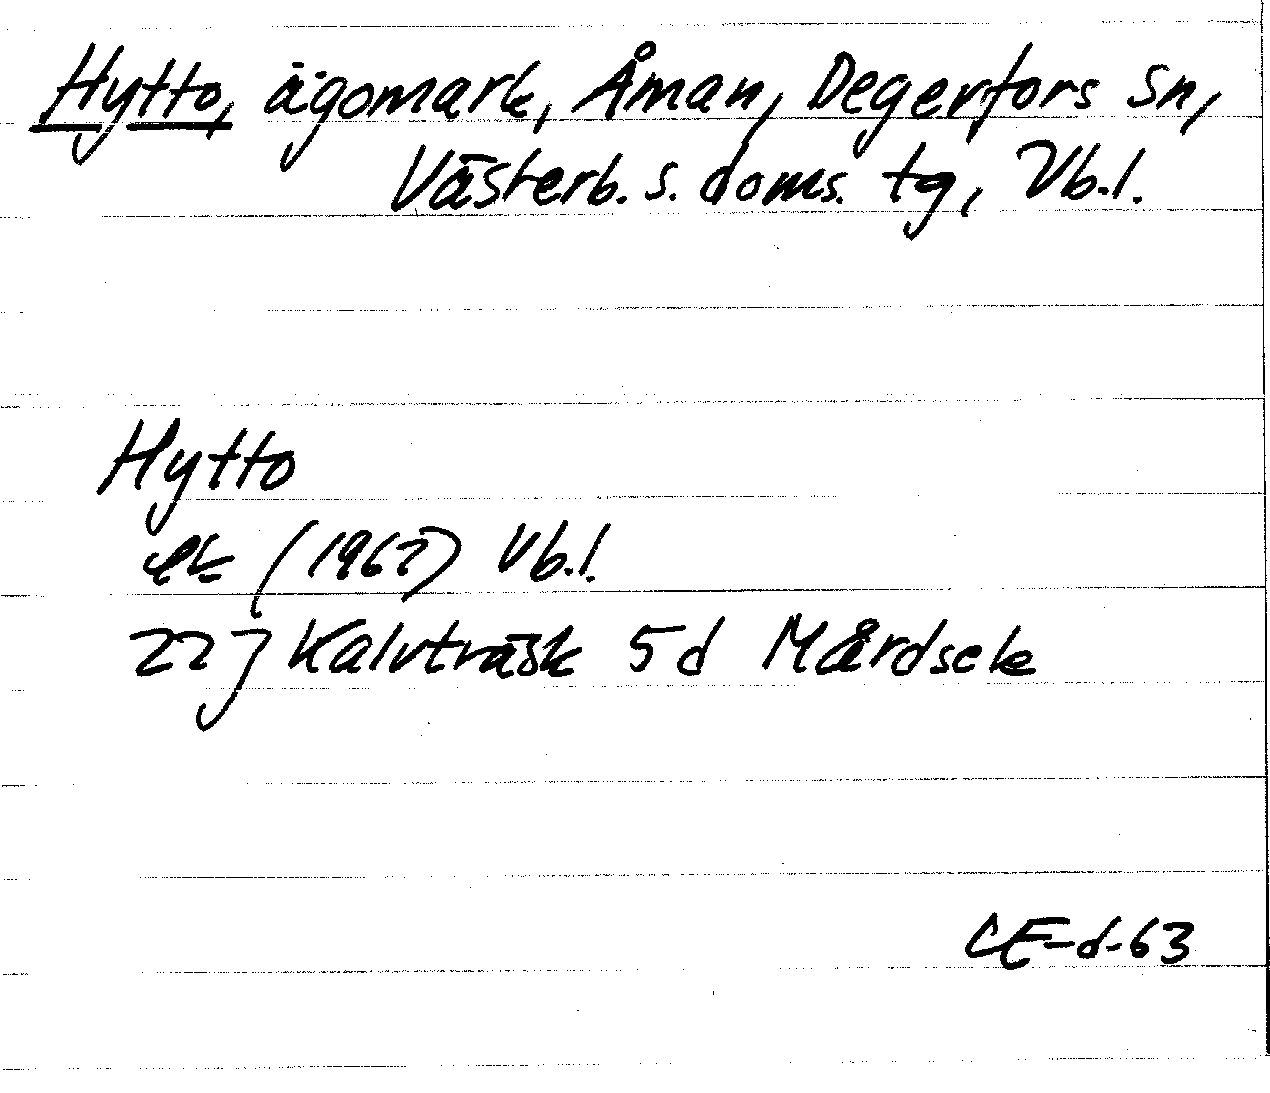 Hytto, ägomark, Åman, Degerfors sn,
Västerb. s. doms. tg, Vb.l.
Hytto
ek (1967) Vb.l.
22 J Kalvträsk 5d Mårdsele
CE-d-63